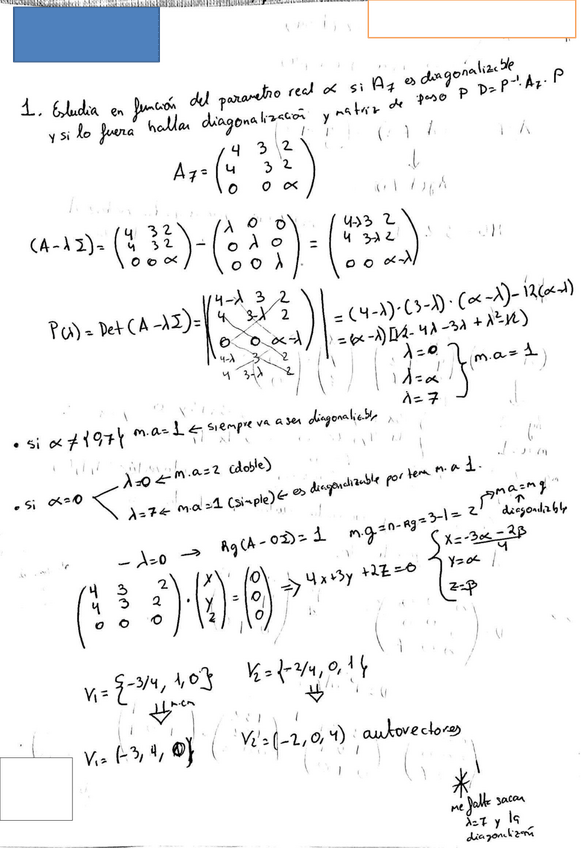 1. Estudia en función del parametro real α si A7 es diagonalizable
y si lo fuera hallar diagonalización y matriz de paso P D=P⁻¹·A7·P
A7 = (4 3 2
4 3 2
0 0 α)
(A-λI) = (4 3 2
4 3 2
0 0 α) - (λ 0 0
0 λ 0
0 0 λ) = (4-λ 3 2
4 3-λ 2
0 0 α-λ)
P(λ) = Det(A-λI) = |4-λ 3 2
4 3-λ 2
0 0 α-λ|
4-λ 3 2
4 3-λ 2
= (4-λ)·(3-λ)·(α-λ)-12(α-λ)
= (α-λ)[12-4λ-3λ+λ²-12)
λ=0
λ=α
λ=7
} (m.a=1
• si α≠{0,7} m.a=1 ← siempre va a ser diagonalizable
• si α=0
λ=0 ← m.a=2 (doble)
λ=7 ← m.a=1 (simple) ← es diagonalizable por tener m.a 1.
- λ=0 → Rg(A-0I)=1 m.g=n-Rg=3-1=2 → ma=mg
↑
diagonalizable
(4 3 2
4 3 2
0 0 0) · (x
y
z) = (0
0
0) => 4x+3y+2z=0
{ x = -3α-2β / 4
y=α
z=β
V1 = {-3/4, 1, 0} V2 = {-2/4, 0, 1}
⇓ m.c.m ⇓
V1 = (-3, 4, 0) V2 = (-2, 0, 4) autovectores
*
me falta sacar
λ=7 y la
diagonalización